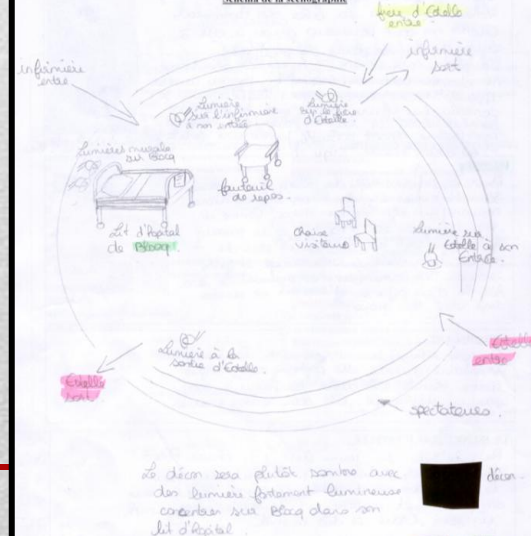 Schéma de la scénographie
frère d'Estelle
entre
infirmière
sort
infirmière
entre
Lumière
sur l'infirmière
à son entrée
Lumière
sur le frère
d'Estelle
Lumières murales
sur Blocq
fauteuil
de repos.
Lit d'hôpital
de Blocq
chaise
visiteurs
Lumière sur
Estelle à son
Entrée.
Estelle
entre
Lumière à la
sortie d'Estelle.
Estelle
sort
spectateurs.
Le décor sera plutôt sombre avec
des lumière fortement lumineuse
sur Blocq dans son
lit d'hôpital.
décor